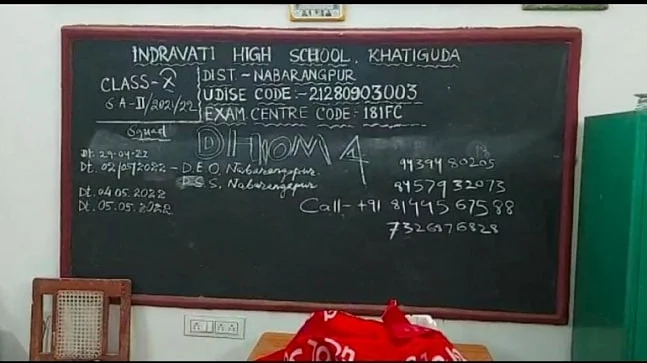 INDRAVATI HIGH SCHOOL, KHATIGUDA
CLASS-X
SA-II/2021/22
DIST - NABARANGPUR
UDISE CODE:- 21280903003
EXAM CENTRE CODE:- 181FC
Squad
DHOOM 4
Dt. 29.04.22
Dt. 02/05/2022 - D.E.O, Nabarangapur.
D.S.S, Nabarangapur.
Dt. 04.05.2022
Dt. 05.05.2022
9439480205
8457932073
Call- +91 8144567588
7326876828